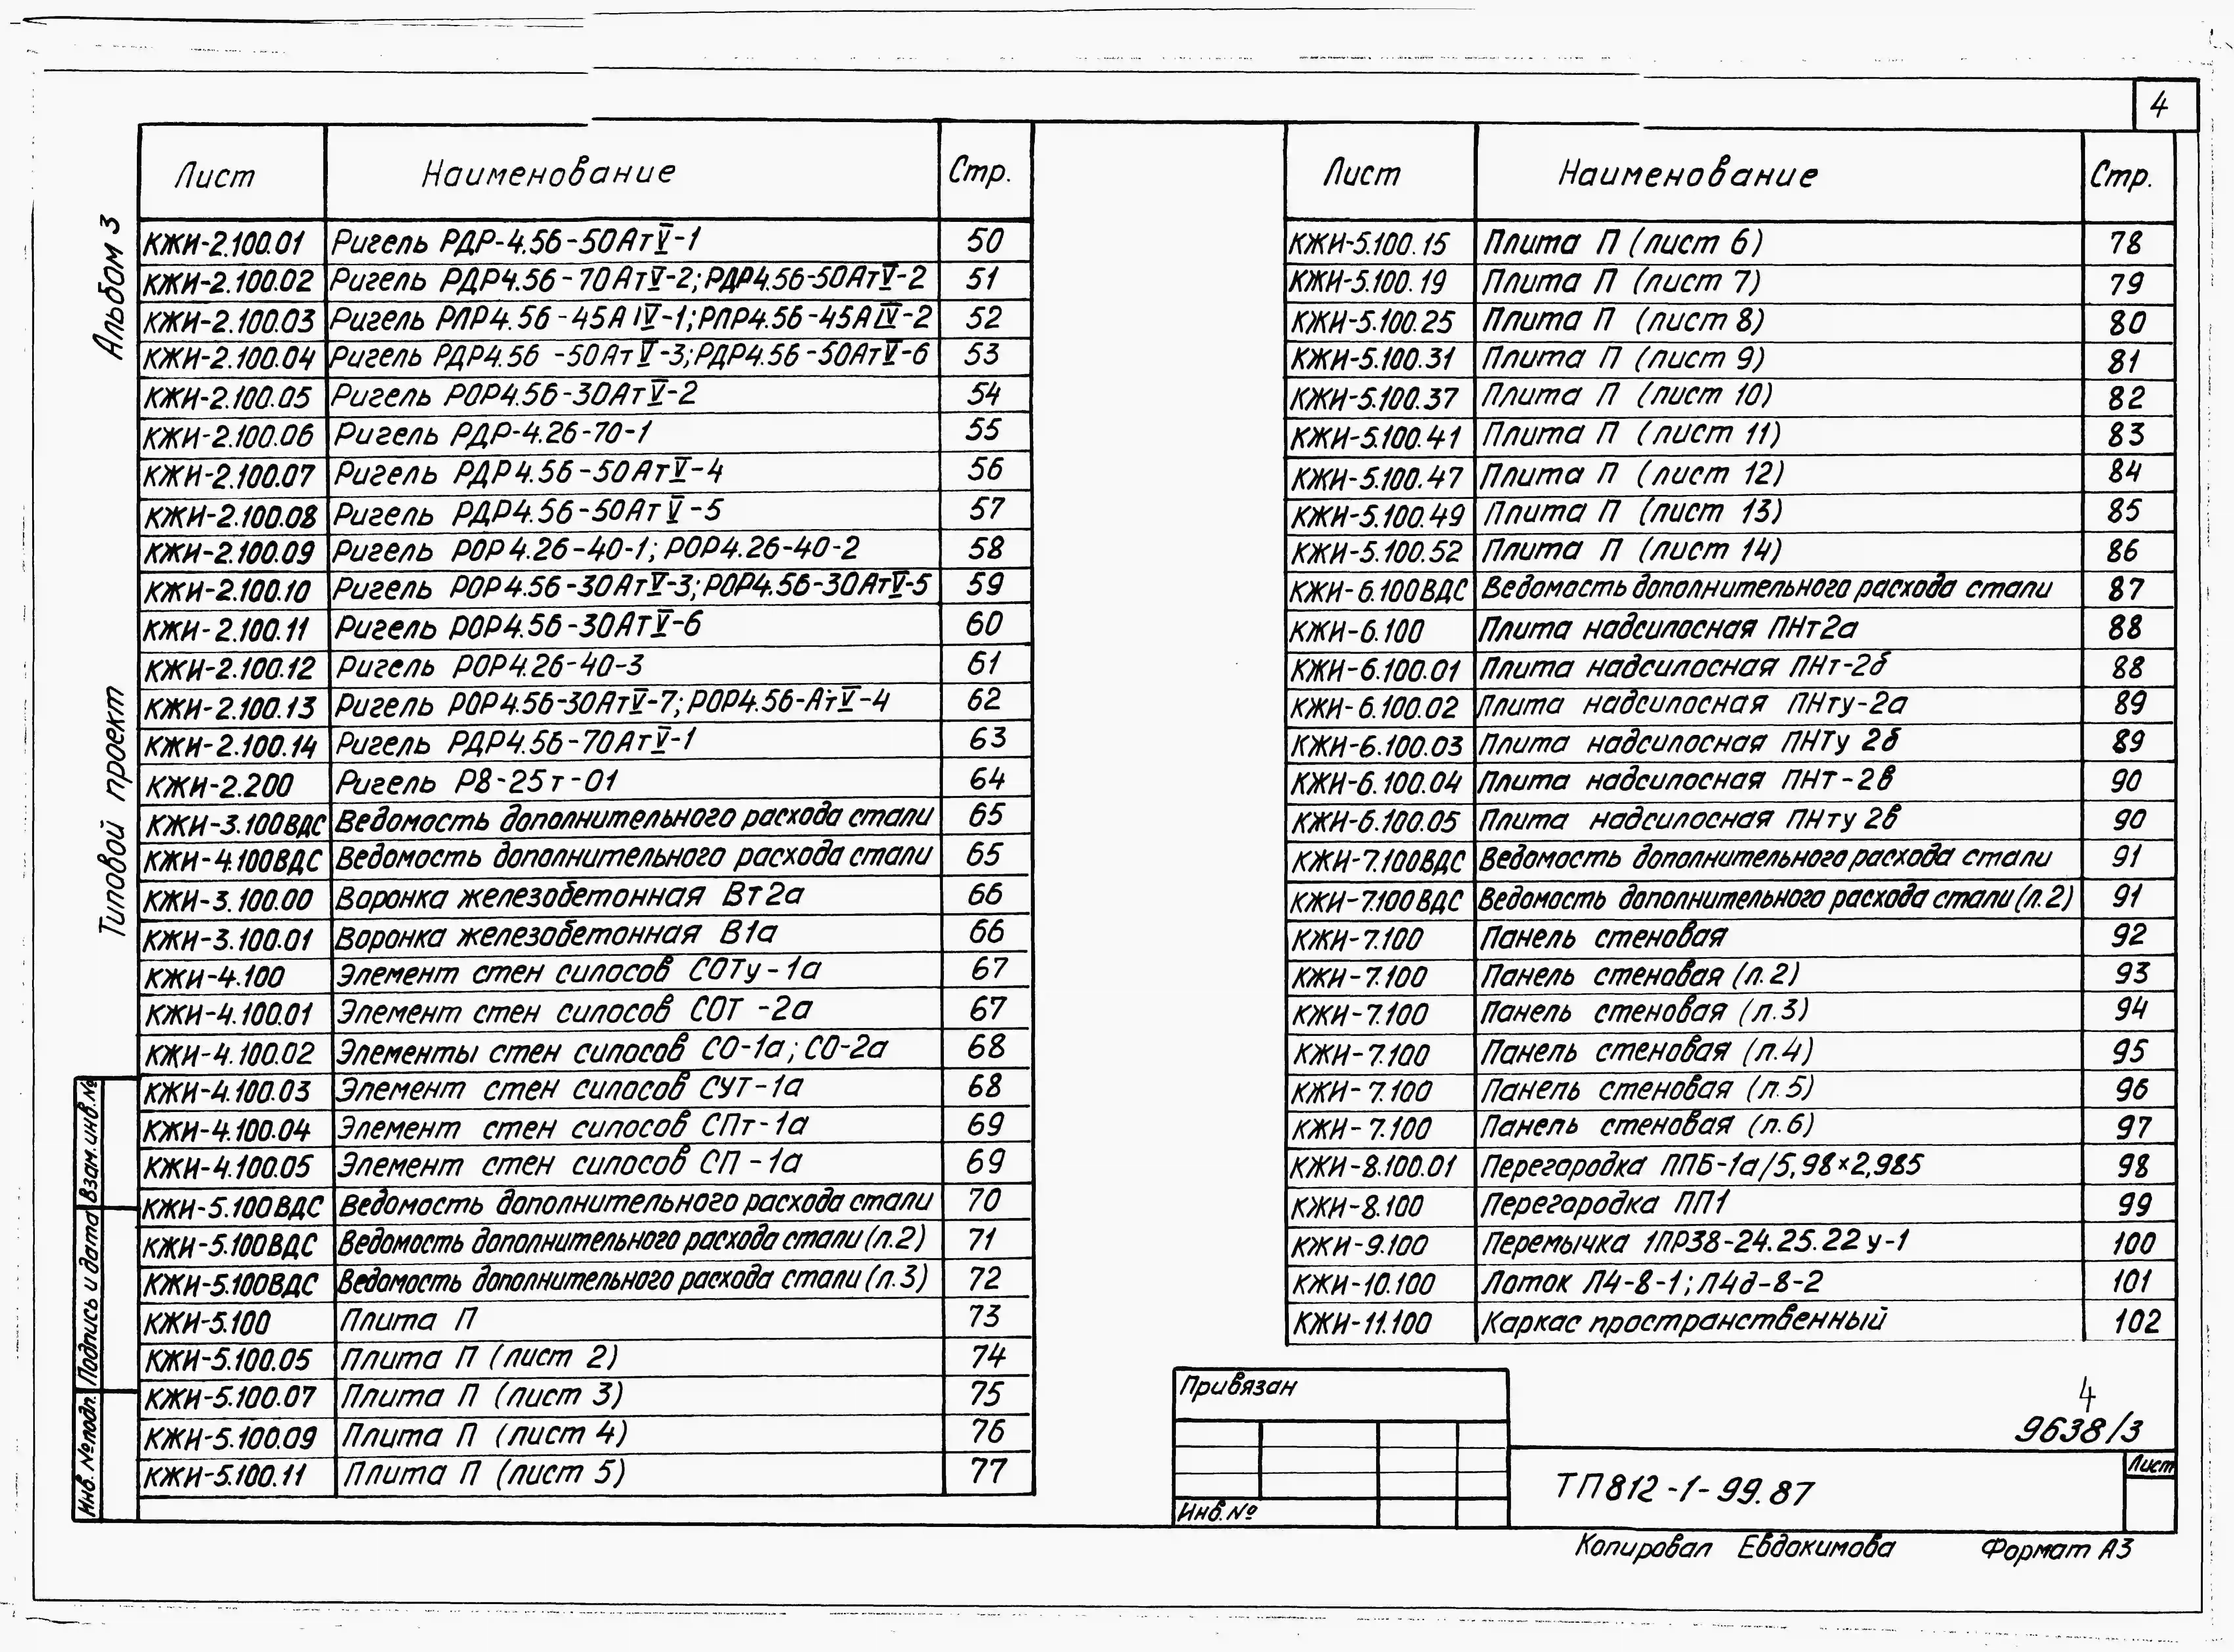 4
Альбом 3
Типовой проект
Лист Наименование Стр.
КЖИ-2.100.01 Ригель РДР-4.56-50АтV-1 50
КЖИ-2.100.02 Ригель РДР4.56-70АтV-2; РДР4.56-50АтV-2 51
КЖИ-2.100.03 Ригель РЛР4.56-45АIV-1; РЛР4.56-45АIV-2 52
КЖИ-2.100.04 Ригель РДР4.56-50АтV-3; РДР4.56-50АтV-6 53
КЖИ-2.100.05 Ригель РОР4.56-30АтV-2 54
КЖИ-2.100.06 Ригель РДР-4.26-70-1 55
КЖИ-2.100.07 Ригель РДР4.56-50АтV-4 56
КЖИ-2.100.08 Ригель РДР4.56-50АтV-5 57
КЖИ-2.100.09 Ригель РОР4.26-40-1; РОР4.26-40-2 58
КЖИ-2.100.10 Ригель РОР4.56-30АтV-3; РОР4.56-30АтV-5 59
КЖИ-2.100.11 Ригель РОР4.56-30АтV-6 60
КЖИ-2.100.12 Ригель РОР4.26-40-3 61
КЖИ-2.100.13 Ригель РОР4.56-30АтV-7; РОР4.56-АтV-4 62
КЖИ-2.100.14 Ригель РДР4.56-70АтV-1 63
КЖИ-2.200 Ригель Р8-25т-01 64
КЖИ-3.100ВДС Ведомость дополнительного расхода стали 65
КЖИ-4.100ВДС Ведомость дополнительного расхода стали 65
КЖИ-3.100.00 Воронка железобетонная Вт2а 66
КЖИ-3.100.01 Воронка железобетонная В1а 66
КЖИ-4.100 Элемент стен силосов СОТу-1а 67
КЖИ-4.100.01 Элемент стен силосов СОТ-2а 67
КЖИ-4.100.02 Элементы стен силосов СО-1а; СО-2а 68
КЖИ-4.100.03 Элемент стен силосов СУТ-1а 68
КЖИ-4.100.04 Элемент стен силосов СПт-1а 69
КЖИ-4.100.05 Элемент стен силосов СП-1а 69
КЖИ-5.100ВДС Ведомость дополнительного расхода стали 70
КЖИ-5.100ВДС Ведомость дополнительного расхода стали (л.2) 71
КЖИ-5.100ВДС Ведомость дополнительного расхода стали (л.3) 72
КЖИ-5.100 Плита П 73
КЖИ-5.100.05 Плита П (лист 2) 74
КЖИ-5.100.07 Плита П (лист 3) 75
КЖИ-5.100.09 Плита П (лист 4) 76
КЖИ-5.100.11 Плита П (лист 5) 77
Лист Наименование Стр.
КЖИ-5.100.15 Плита П (лист 6) 78
КЖИ-5.100.19 Плита П (лист 7) 79
КЖИ-5.100.25 Плита П (лист 8) 80
КЖИ-5.100.31 Плита П (лист 9) 81
КЖИ-5.100.37 Плита П (лист 10) 82
КЖИ-5.100.41 Плита П (лист 11) 83
КЖИ-5.100.47 Плита П (лист 12) 84
КЖИ-5.100.49 Плита П (лист 13) 85
КЖИ-5.100.52 Плита П (лист 14) 86
КЖИ-6.100ВДС Ведомость дополнительного расхода стали 87
КЖИ-6.100 Плита надсилосная ПНт2а 88
КЖИ-6.100.01 Плита надсилосная ПНт-2б 88
КЖИ-6.100.02 Плита надсилосная ПНту-2а 89
КЖИ-6.100.03 Плита надсилосная ПНТу 2б 89
КЖИ-6.100.04 Плита надсилосная ПНт-2в 90
КЖИ-6.100.05 Плита надсилосная ПНту 2в 90
КЖИ-7.100ВДС Ведомость дополнительного расхода стали 91
КЖИ-7.100ВДС Ведомость дополнительного расхода стали (л.2) 91
КЖИ-7.100 Панель стеновая 92
КЖИ-7.100 Панель стеновая (л.2) 93
КЖИ-7.100 Панель стеновая (л.3) 94
КЖИ-7.100 Панель стеновая (л.4) 95
КЖИ-7.100 Панель стеновая (л.5) 96
КЖИ-7.100 Панель стеновая (л.6) 97
КЖИ-8.100.01 Перегородка ППБ-1а/5,98×2,985 98
КЖИ-8.100 Перегородка ПП1 99
КЖИ-9.100 Перемычка 1ПР38-24.25.22у-1 100
КЖИ-10.100 Лоток Л4-8-1; Л4д-8-2 101
КЖИ-11.100 Каркас пространственный 102
Взам.инв.№
Подпись и дата
Инв. № подл.
Привязан
Инв. №
4
9638/3
ТП812-1-99.87
Лист
Копировал Евдокимова Формат А3